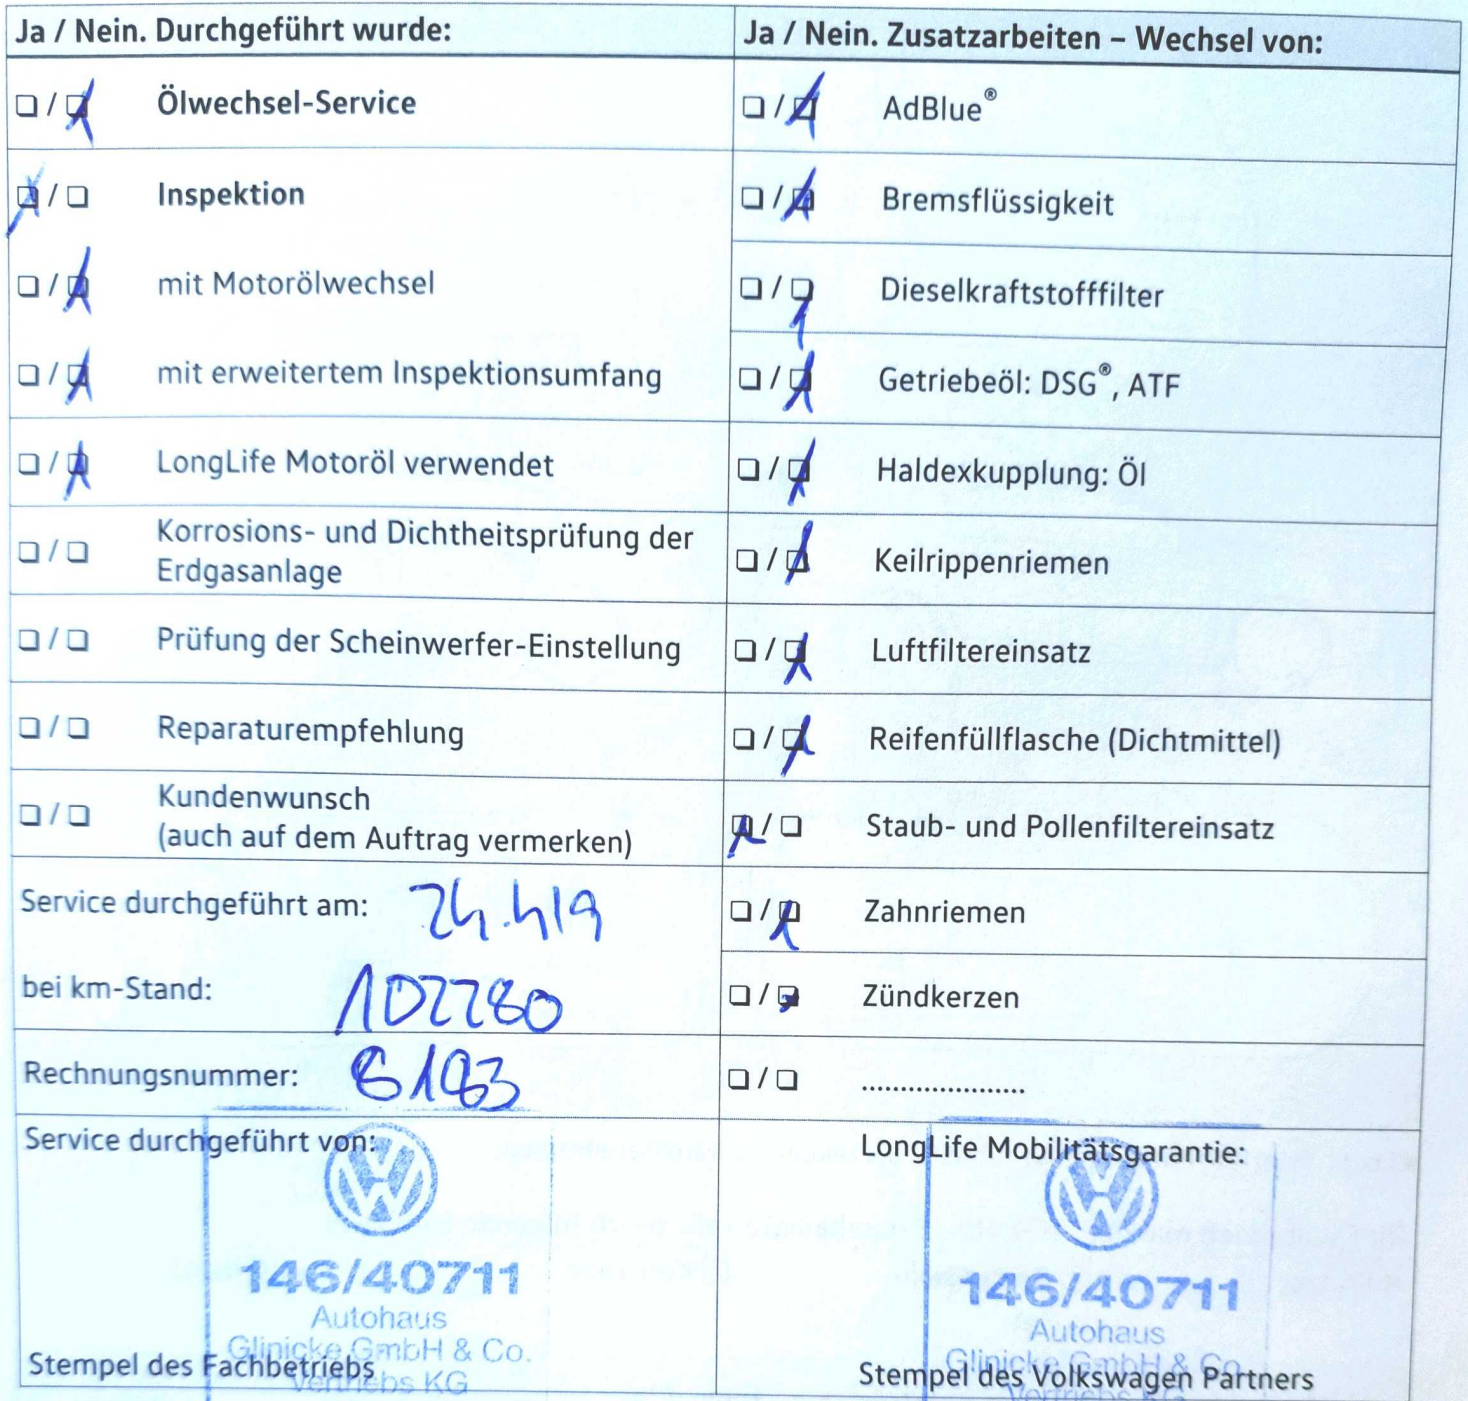 Ja / Nein. Durchgeführt wurde:
Ölwechsel-Service
Inspektion
mit Motorölwechsel
mit erweitertem Inspektionsumfang
LongLife Motoröl verwendet
Korrosions- und Dichtheitsprüfung der
Erdgasanlage
Prüfung der Scheinwerfer-Einstellung
Reparaturempfehlung
Kundenwunsch
(auch auf dem Auftrag vermerken)
Service durchgeführt am: 24.4.19
bei km-Stand: 102280
Rechnungsnummer:
Service durchgeführt von:
146/40711
Autohaus
Glinicke GmbH & Co.
Vertriebs KG
Stempel des Fachbetriebs
Ja / Nein. Zusatzarbeiten – Wechsel von:
AdBlue®
Bremsflüssigkeit
Dieselkraftstofffilter
Getriebeöl: DSG®, ATF
Haldexkupplung: Öl
Keilrippenriemen
Luftfiltereinsatz
Reifenfüllflasche (Dichtmittel)
Staub- und Pollenfiltereinsatz
Zahnriemen
Zündkerzen
....................
LongLife Mobilitätsgarantie:
146/40711
Autohaus
Glinicke GmbH & Co.
Vertriebs KG
Stempel des Volkswagen Partners